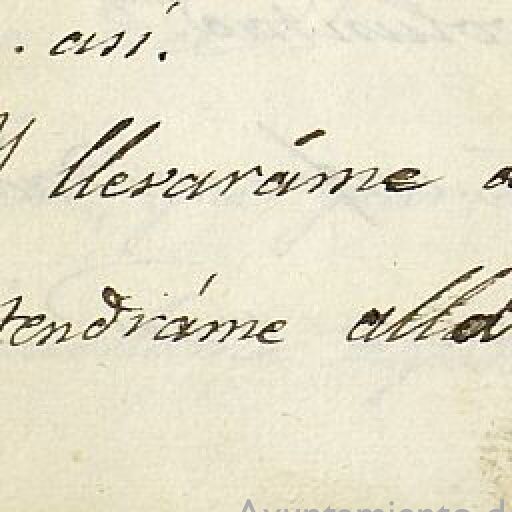 . así.
Y llevaráme a
tendráme allá
Ayuntamiento d